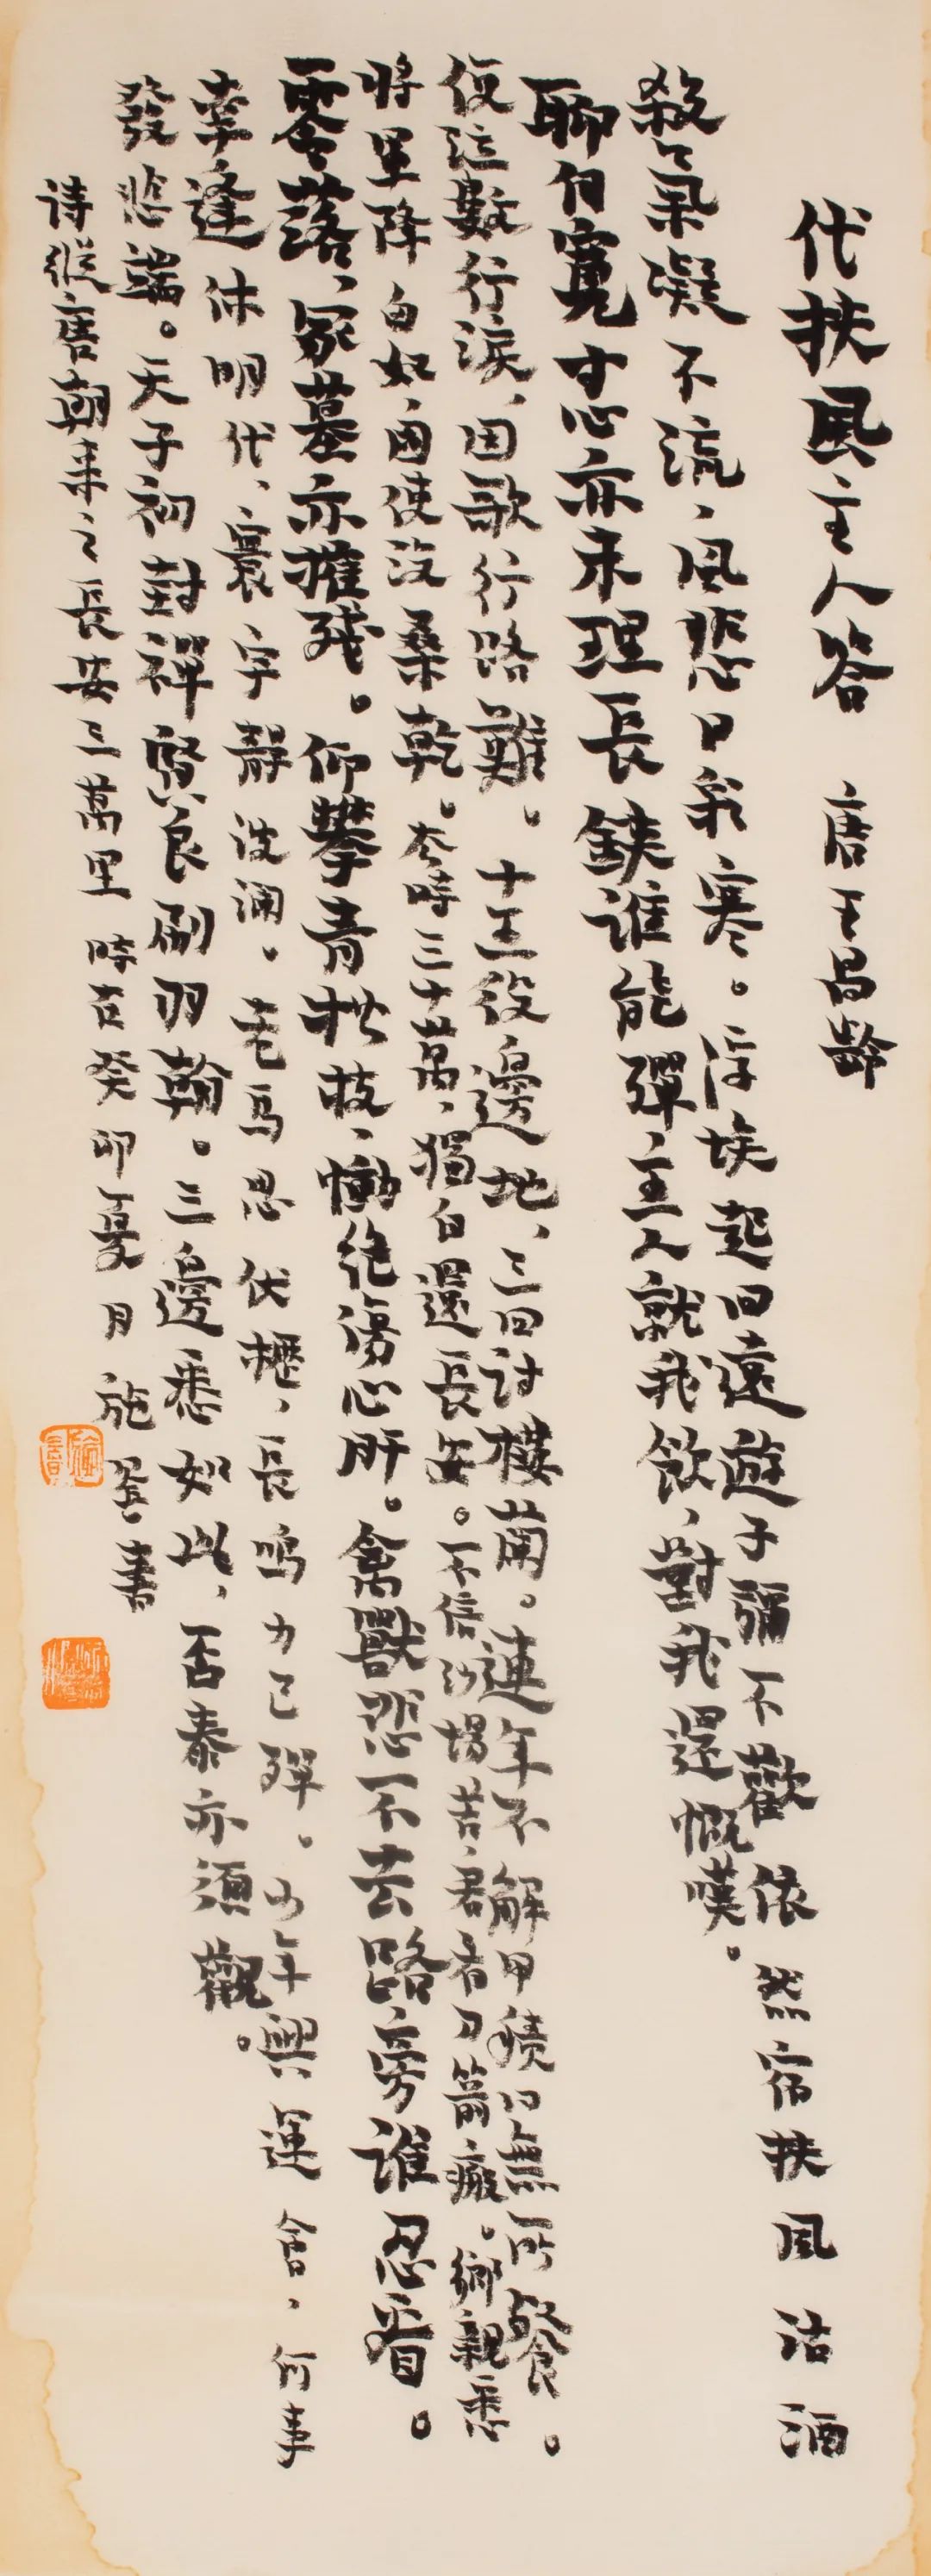 代扶風主人答 唐王昌齡
殺氣凝不流、風悲日彩寒。浮埃起四遠遊子彌不歡依然宿扶風沽酒
聊自寬寸心亦未理長鋏誰能彈、主人就我飲、對我還慨嘆。
便泣數行淚、因歌行路難。十五役邊地、三回討樓蘭。連年不解甲積日無所餐。
將軍降匈奴、國使沒桑乾。去時三十萬、獨自還長安。不信沙場苦、君看刀箭瘢。鄉親悉
零落、冢墓亦摧殘。仰攀青松枝、慟絕傷心肝。禽獸悲不去路旁誰忍看。
幸逢休明代、寰宇靜波瀾。老馬思伏櫪、長鳴力已殫。少年興運會、何事
發悲端。天子初封禪賢良刷羽翰。三邊悉如此、否泰亦須觀。
诗從唐朝来之長安三萬里 時在癸卯夏月 施書